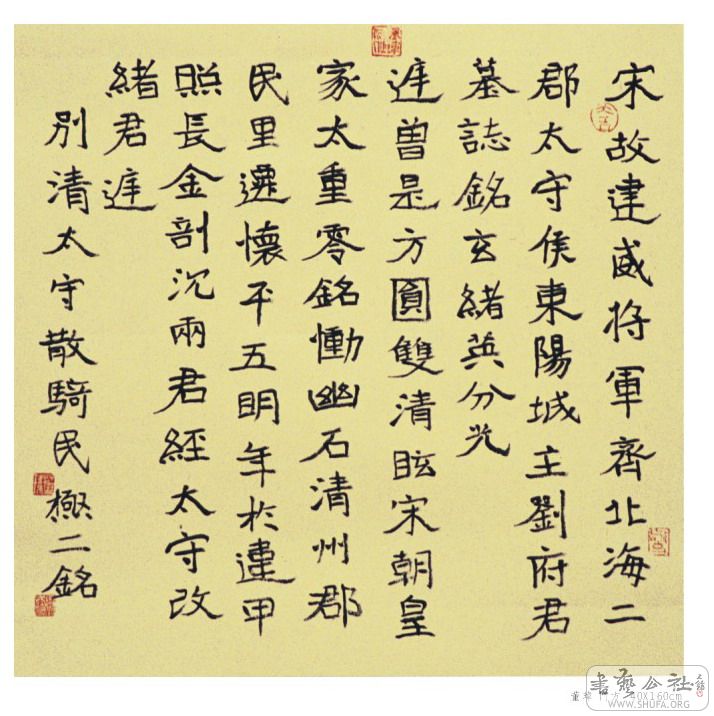 宋故建威将軍齊北海二
郡太守侯東陽城主劉府君
墓誌銘玄緒英分光
遅曽是方圓雙清眩宋朝皇
家太重零銘慟幽石清州郡
民里遷懷平五明年於建甲
照長金剖沉兩君經太守改
緒君遅
別清太守散騎民極二銘
書藝公社
WWW.SHUFA.ORG